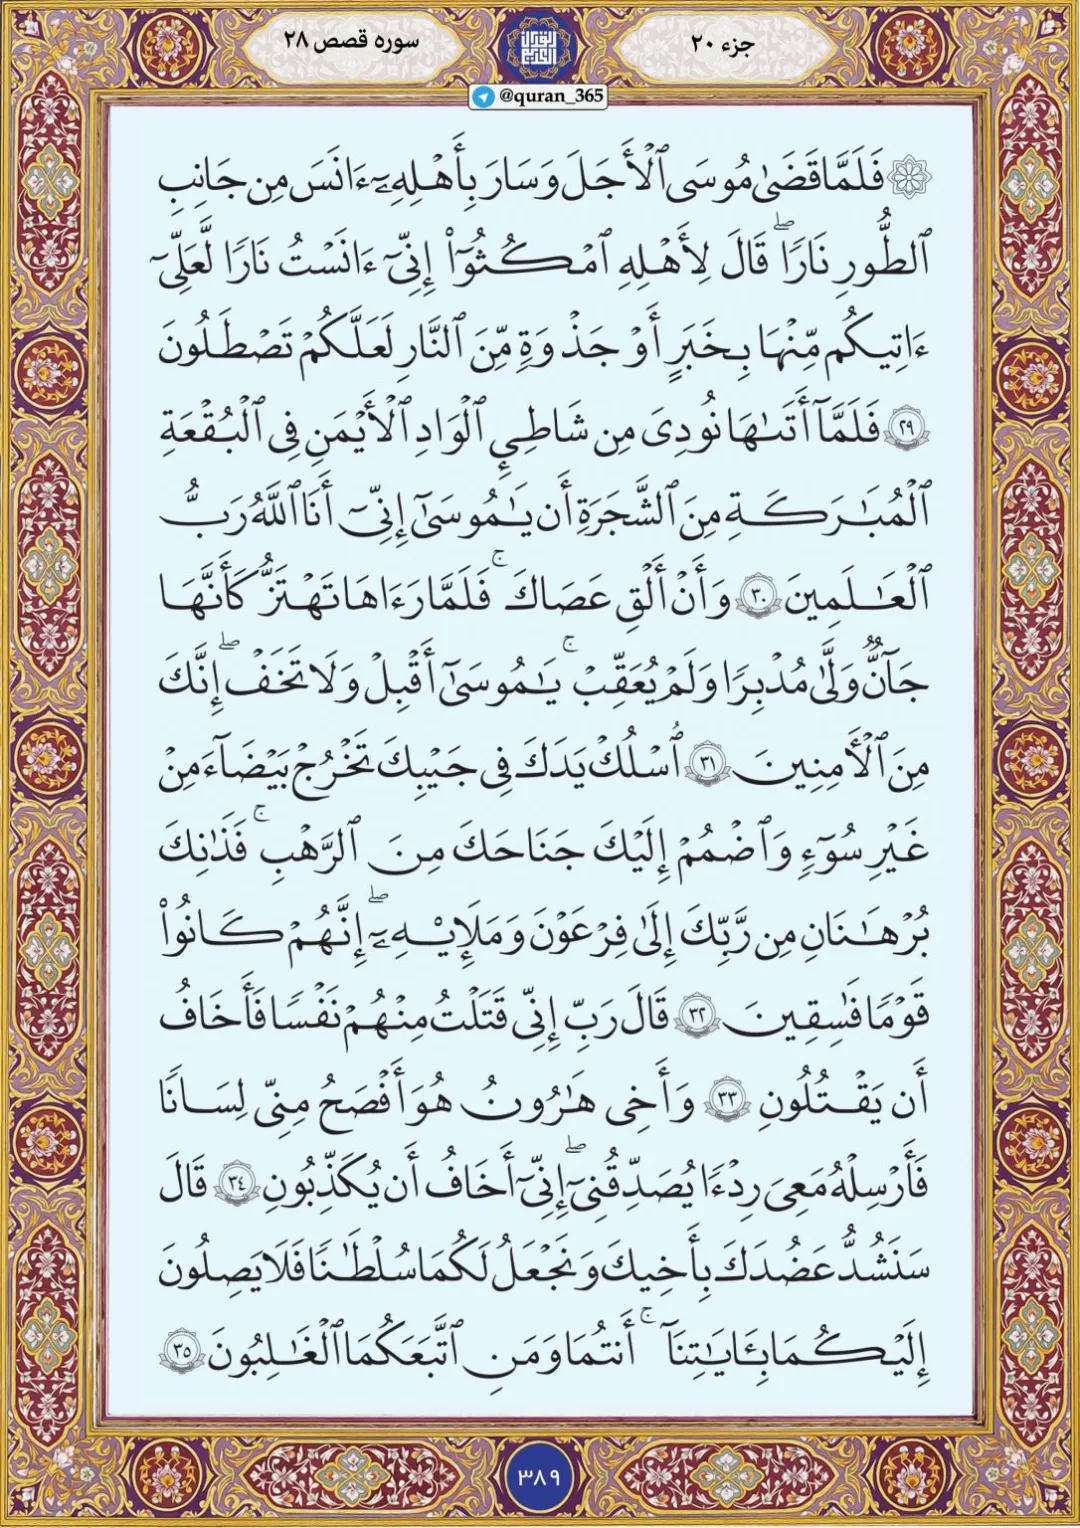 جزء ۲۰
سوره قصص ۲۸
@quran_365
۞ فَلَمَّا قَضَىٰ مُوسَى ٱلْأَجَلَ وَسَارَ بِأَهْلِهِۦٓ ءَانَسَ مِن جَانِبِ
ٱلطُّورِ نَارًاۖ قَالَ لِأَهْلِهِ ٱمْكُثُوٓا۟ إِنِّىٓ ءَانَسْتُ نَارًا لَّعَلِّىٓ
ءَاتِيكُم مِّنْهَا بِخَبَرٍ أَوْ جَذْوَةٍ مِّنَ ٱلنَّارِ لَعَلَّكُمْ تَصْطَلُونَ
۲۹ فَلَمَّآ أَتَىٰهَا نُودِىَ مِن شَاطِئِ ٱلْوَادِ ٱلْأَيْمَنِ فِى ٱلْبُقْعَةِ
ٱلْمُبَٰرَكَةِ مِنَ ٱلشَّجَرَةِ أَن يَٰمُوسَىٰٓ إِنِّىٓ أَنَا ٱللَّهُ رَبُّ
ٱلْعَٰلَمِينَ ۳۰ وَأَنْ أَلْقِ عَصَاكَۚ فَلَمَّا رَءَاهَا تَهْتَزُّ كَأَنَّهَا
جَآنٌّ وَلَّىٰ مُدْبِرًا وَلَمْ يُعَقِّبْۚ يَٰمُوسَىٰٓ أَقْبِلْ وَلَا تَخَفْۖ إِنَّكَ
مِنَ ٱلْأَمِنِينَ ۳۱ ٱسْلُكْ يَدَكَ فِى جَيْبِكَ تَخْرُجْ بَيْضَآءَ مِنْ
غَيْرِ سُوٓءٍ وَٱضْمُمْ إِلَيْكَ جَنَاحَكَ مِنَ ٱلرَّهْبِۚ فَذَٰنِكَ
بُرْهَٰنَانِ مِن رَّبِّكَ إِلَىٰ فِرْعَوْنَ وَمَلَإِيْهِۦٓۖ إِنَّهُمْ كَانُوا۟
قَوْمًا فَٰسِقِينَ ۳۲ قَالَ رَبِّ إِنِّى قَتَلْتُ مِنْهُمْ نَفْسًا فَأَخَافُ
أَن يَقْتُلُونِ ۳۳ وَأَخِى هَٰرُونُ هُوَ أَفْصَحُ مِنِّى لِسَانًا
فَأَرْسِلْهُ مَعِىَ رِدْءًا يُصَدِّقُنِىٓۖ إِنِّىٓ أَخَافُ أَن يُكَذِّبُونِ ۳۴ قَالَ
سَنَشُدُّ عَضُدَكَ بِأَخِيكَ وَنَجْعَلُ لَكُمَا سُلْطَٰنًا فَلَا يَصِلُونَ
إِلَيْكُمَا بِـَٔايَٰتِنَآۚ أَنتُمَا وَمَنِ ٱتَّبَعَكُمَا ٱلْغَٰلِبُونَ ۳۵
۳۸۹